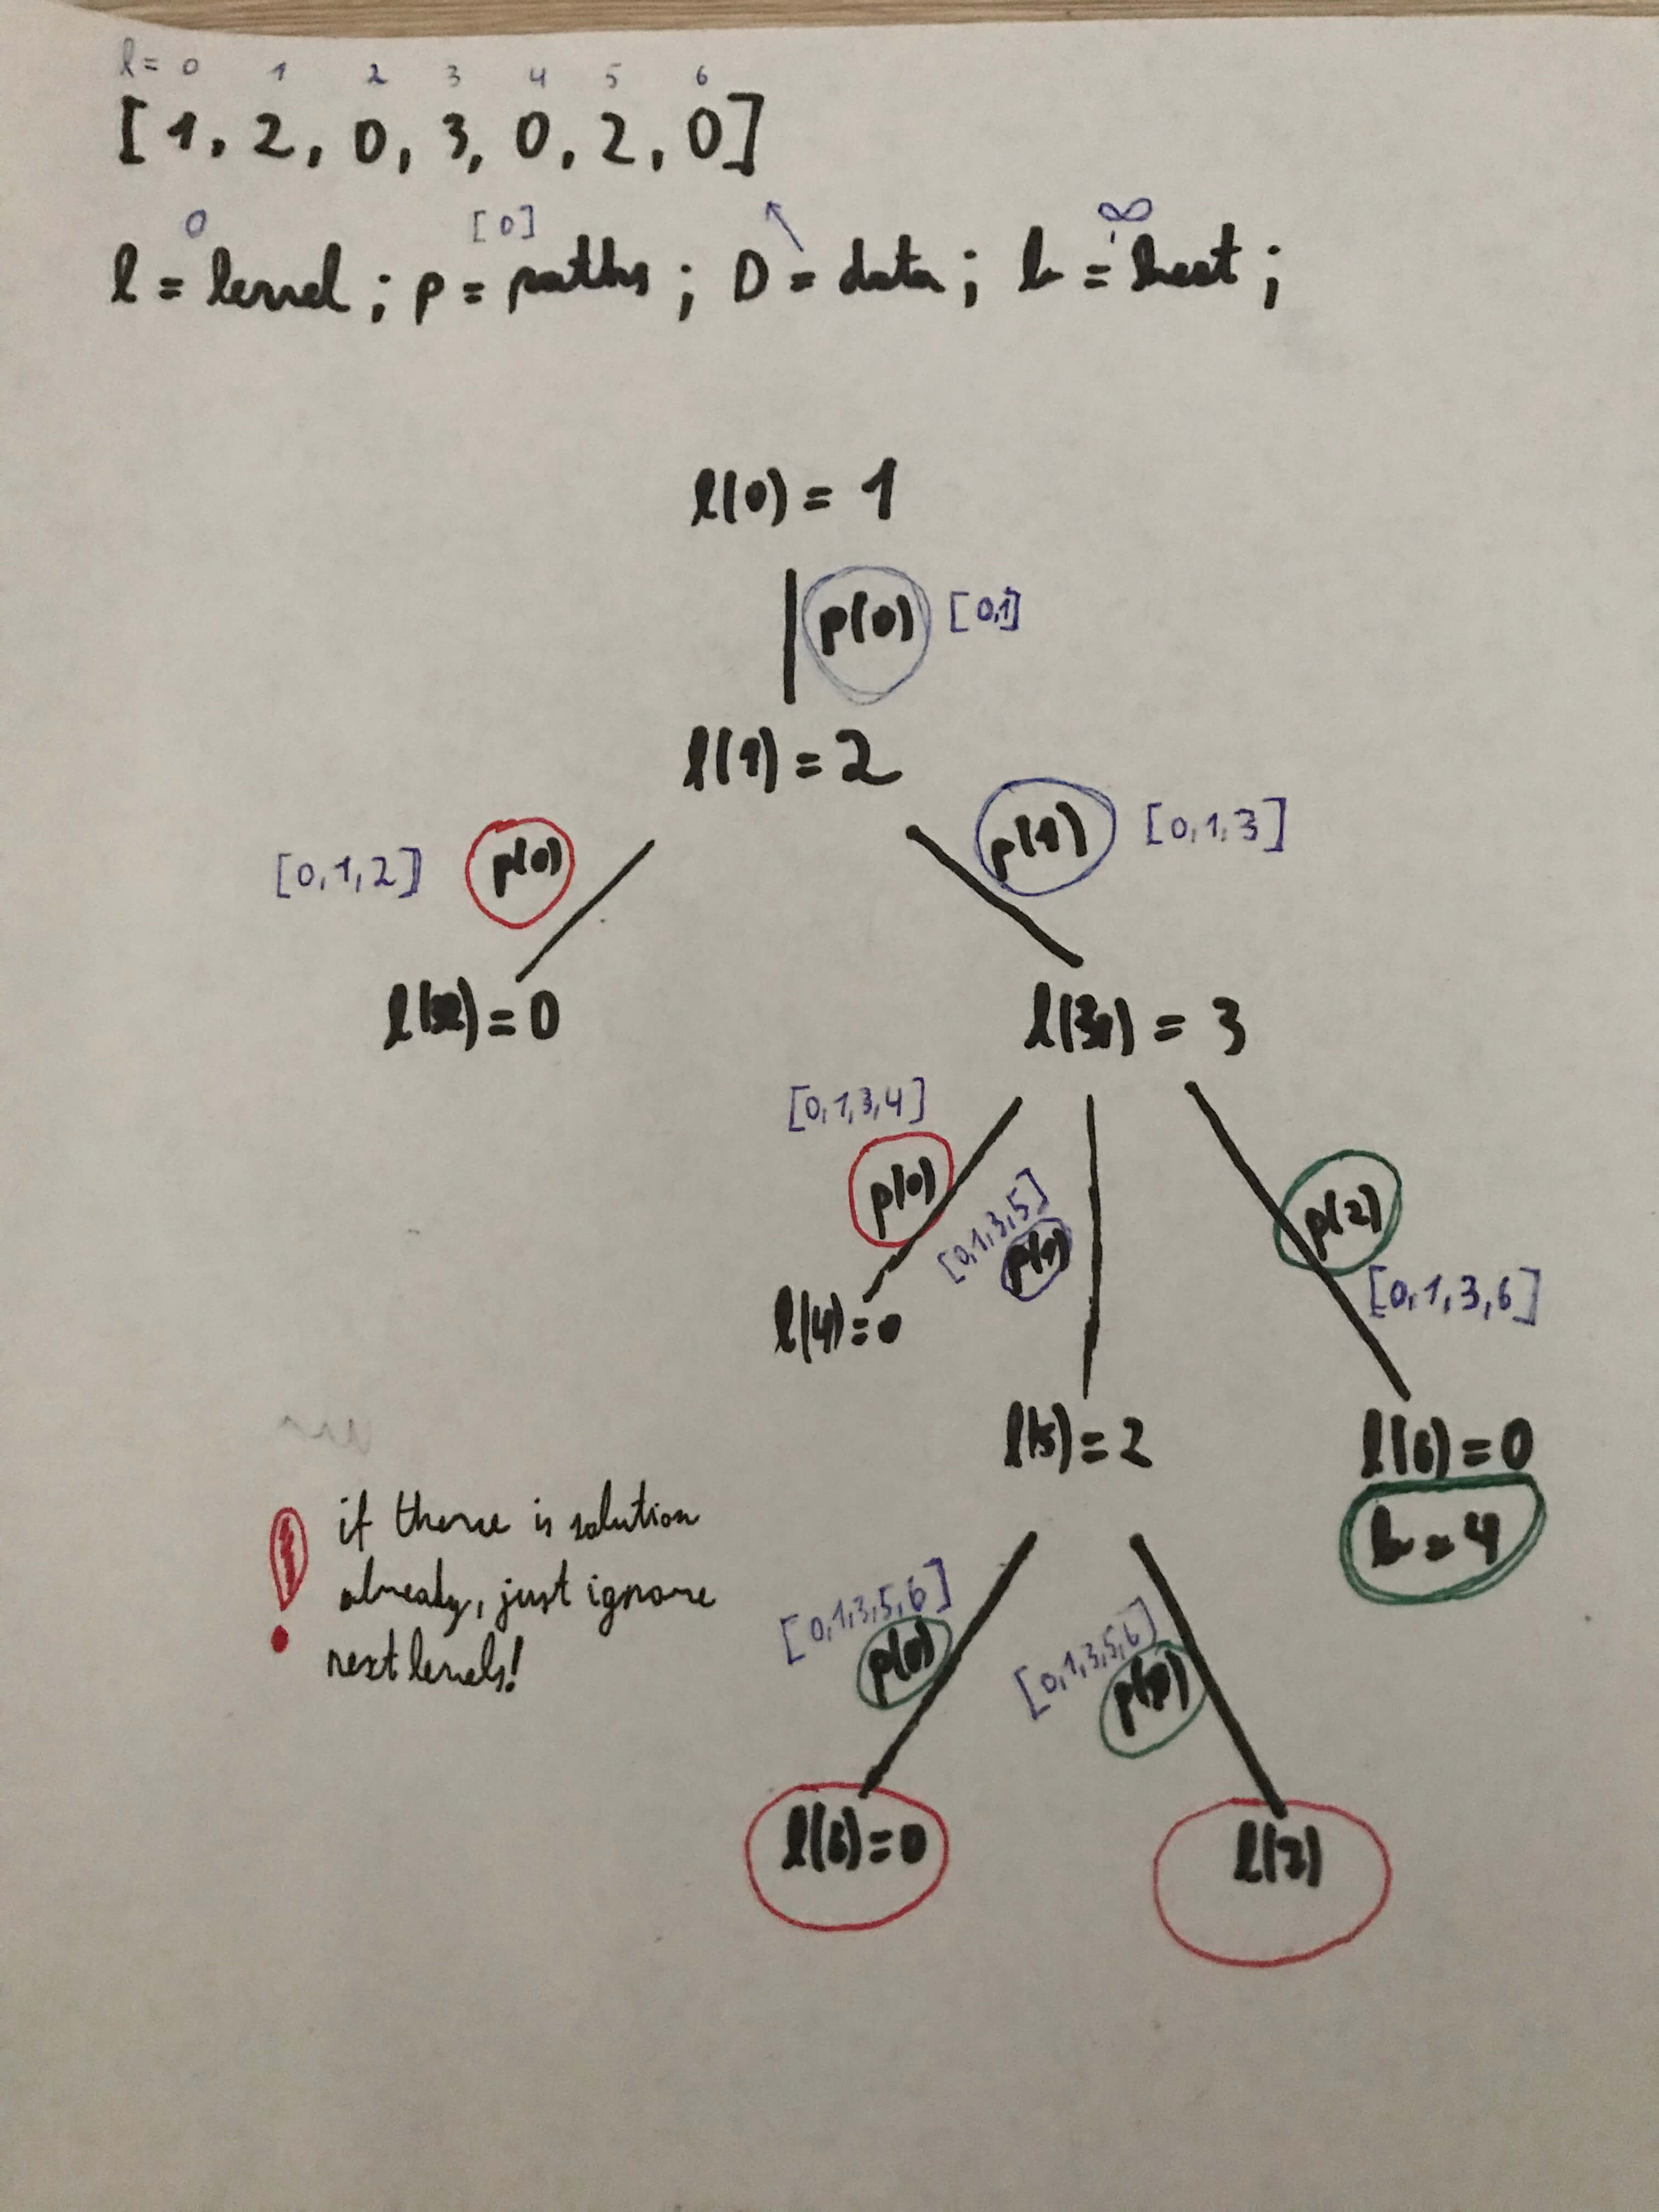 l = 0 1 2 3 4 5 6
[1, 2, 0, 3, 0, 2, 0]
0 [0] ∞
l = level; p = paths; D = data; b = best;
l(0) = 1
p(0) [0,1]
l(1) = 2
[0,1,2] p(0) p(1) [0,1,3]
l(2) = 0 l(3) = 3
[0,1,3,4]
p(0) [0,1,3,5] p(1) p(2)
[0,1,3,6]
l(4) = 0
l(5) = 2 l(6) = 0
b = 4
! if there is solution
already, just ignore
next levels!
[0,1,3,5,6] [0,1,3,5,6]
p(0)
l(6) = 0 l(7)